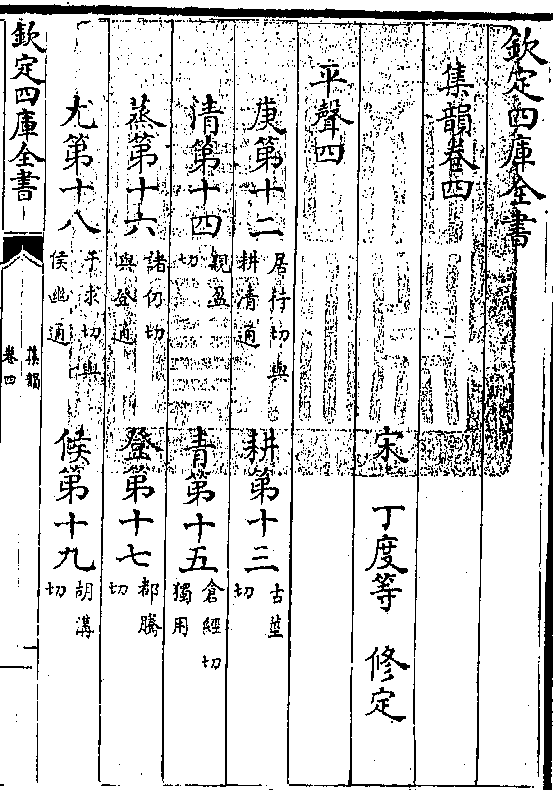 欽定四庫全書
集韻卷四
宋 丁度等 修定
平聲四
庚第十二 居行切與耕清通 耕第十三 古莖切
清第十四 親盈切 青第十五 倉經切獨用
蒸第十六 諸仍切與登通 登第十七 都騰切
尤第十八 于求切與侯幽通 侯第十九 胡溝切
欽定四庫全書
集韻
卷四